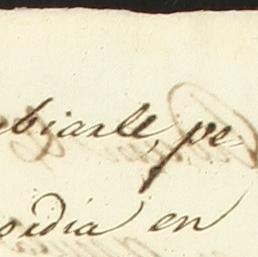 biarle, pe-
sidia en